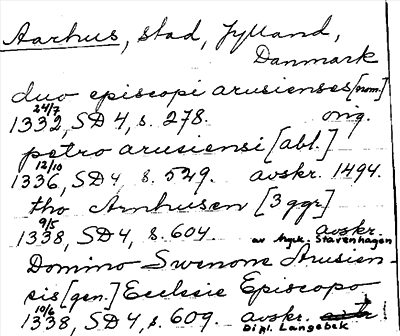 Aarhus, stad, Jylland,
Danmark
duo episcopi arusienses [nom.]
24/7
1332, SD 4, s. 278. orig.
petro arusiensi [abl.]
12/10
1336, SD 4 s. 529. avskr. 1494.
tho Arnhusen [3 ggr]
9/5
1338, SD 4, s. 604 avskr.
av Stavenhagen
Domino Swenone Arusien-
sis [gen.] Ecclesie Episcopo
10/6
1338, SD 4, s. 609. avskr.
Dipl. Langebek !